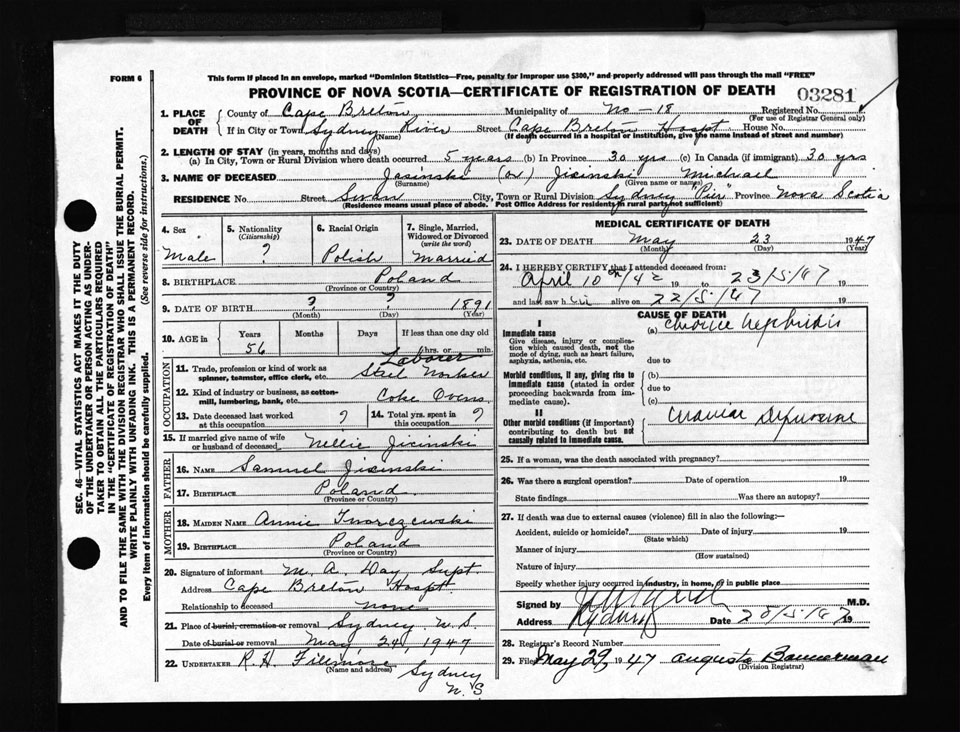 FORM 6
This form if placed in an envelope, marked "Dominion Statistics—Free, penalty for improper use $300," and properly addressed will pass through the mail "FREE"
PROVINCE OF NOVA SCOTIA—CERTIFICATE OF REGISTRATION OF DEATH
03281
SEC. 46—VITAL STATISTICS ACT MAKES IT THE DUTY
OF THE UNDERTAKER OR PERSON ACTING AS UNDER-
TAKER TO OBTAIN ALL THE PARTICULARS REQUIRED
IN THE "CERTIFICATE OF REGISTRATION OF DEATH"
AND TO FILE THE SAME WITH THE DIVISION REGISTRAR WHO SHALL ISSUE THE BURIAL PERMIT.
WRITE PLAINLY WITH UNFADING INK. THIS IS A PERMANENT RECORD.
Every item of information should be carefully supplied. (See reverse side for instructions.)
1. PLACE OF DEATH County of Cape Breton Municipality of No - 18 Registered No.
(For use of Registrar General only)
If in City or Town Sydney River Street Cape Breton Hospt House No.
(Name) (If death occurred in a hospital or institution, give the name instead of street and number)
2. LENGTH OF STAY (in years, months and days)
(a) In City, Town or Rural Division where death occurred 5 years (b) In Province 30 yrs (c) In Canada (if immigrant) 30 yrs
3. NAME OF DECEASED Jasinski (or) Jicinski Michael
(Surname) (Given name or names)
RESIDENCE No. Street Swan City, Town or Rural Division Sydney "Pier" Province Nova Scotia
(Residence means usual place of abode. Post Office Address for residents in rural parts not sufficient)
4. Sex
Male
5. Nationality
(Citizenship)
?
6. Racial Origin
Polish
7. Single, Married,
Widowed or Divorced
(write the word)
Married
8. BIRTHPLACE Poland
(Province or Country)
9. DATE OF BIRTH ? ? 1891
(Month) (Day) (Year)
10. AGE in Years Months Days If less than one day old
56 hrs. or min.
OCCUPATION
11. Trade, profession or kind of work as Laborer
spinner, teamster, office clerk, etc. Steel Worker
12. Kind of industry or business, as cotton-
mill, lumbering, bank, etc. Coke Ovens
13. Date deceased last worked
at this occupation ?
14. Total yrs. spent in
this occupation ?
15. If married give name of wife
or husband of deceased Nellie Jicinski
FATHER
16. NAME Samuel Jicinski
17. BIRTHPLACE Poland
(Province or Country)
MOTHER
18. MAIDEN NAME Annie Twarczewski
19. BIRTHPLACE Poland
(Province or Country)
20. Signature of informant M. A. Day, Supt.
Address Cape Breton Hospt.
Relationship to deceased none
21. Place of burial, cremation or removal Sydney N.S.
Date of burial or removal May, 24, 1947
22. UNDERTAKER R. H. Fillmore
(Name and address) Sydney
N.S.
MEDICAL CERTIFICATE OF DEATH
23. DATE OF DEATH May 23 1947
(Month) (Day) (Year)
24. I HEREBY CERTIFY that I attended deceased from:
April 10th/42 19 to 23/5/47 19
and last saw h im alive on 22/5/47 19
CAUSE OF DEATH
I
Immediate cause
Give disease, injury or complica-
tion which caused death, not the
mode of dying, such as heart failure,
asphyxia, asthenia, etc.
(a) Chronic Nephritis
due to
Morbid conditions, if any, giving rise to
immediate cause (stated in order
proceeding backwards from im-
mediate cause).
(b)
due to
(c)
II
Other morbid conditions (if important)
contributing to death but not
causally related to immediate cause.
25. If a woman, was the death associated with pregnancy?
26. Was there a surgical operation? Date of operation 19
State findings Was there an autopsy?
27. If death was due to external causes (violence) fill in also the following:—
Accident, suicide or homicide? Date of injury 19
(State which)
Manner of injury
(How sustained)
Nature of injury
Specify whether injury occurred in industry, in home, or in public place
Signed by M.D.
Address Sydney Date 28/5/47 19
28. Registrar's Record Number
29. Filed May 29, 1947 Augusta Bannerman
(Division Registrar)